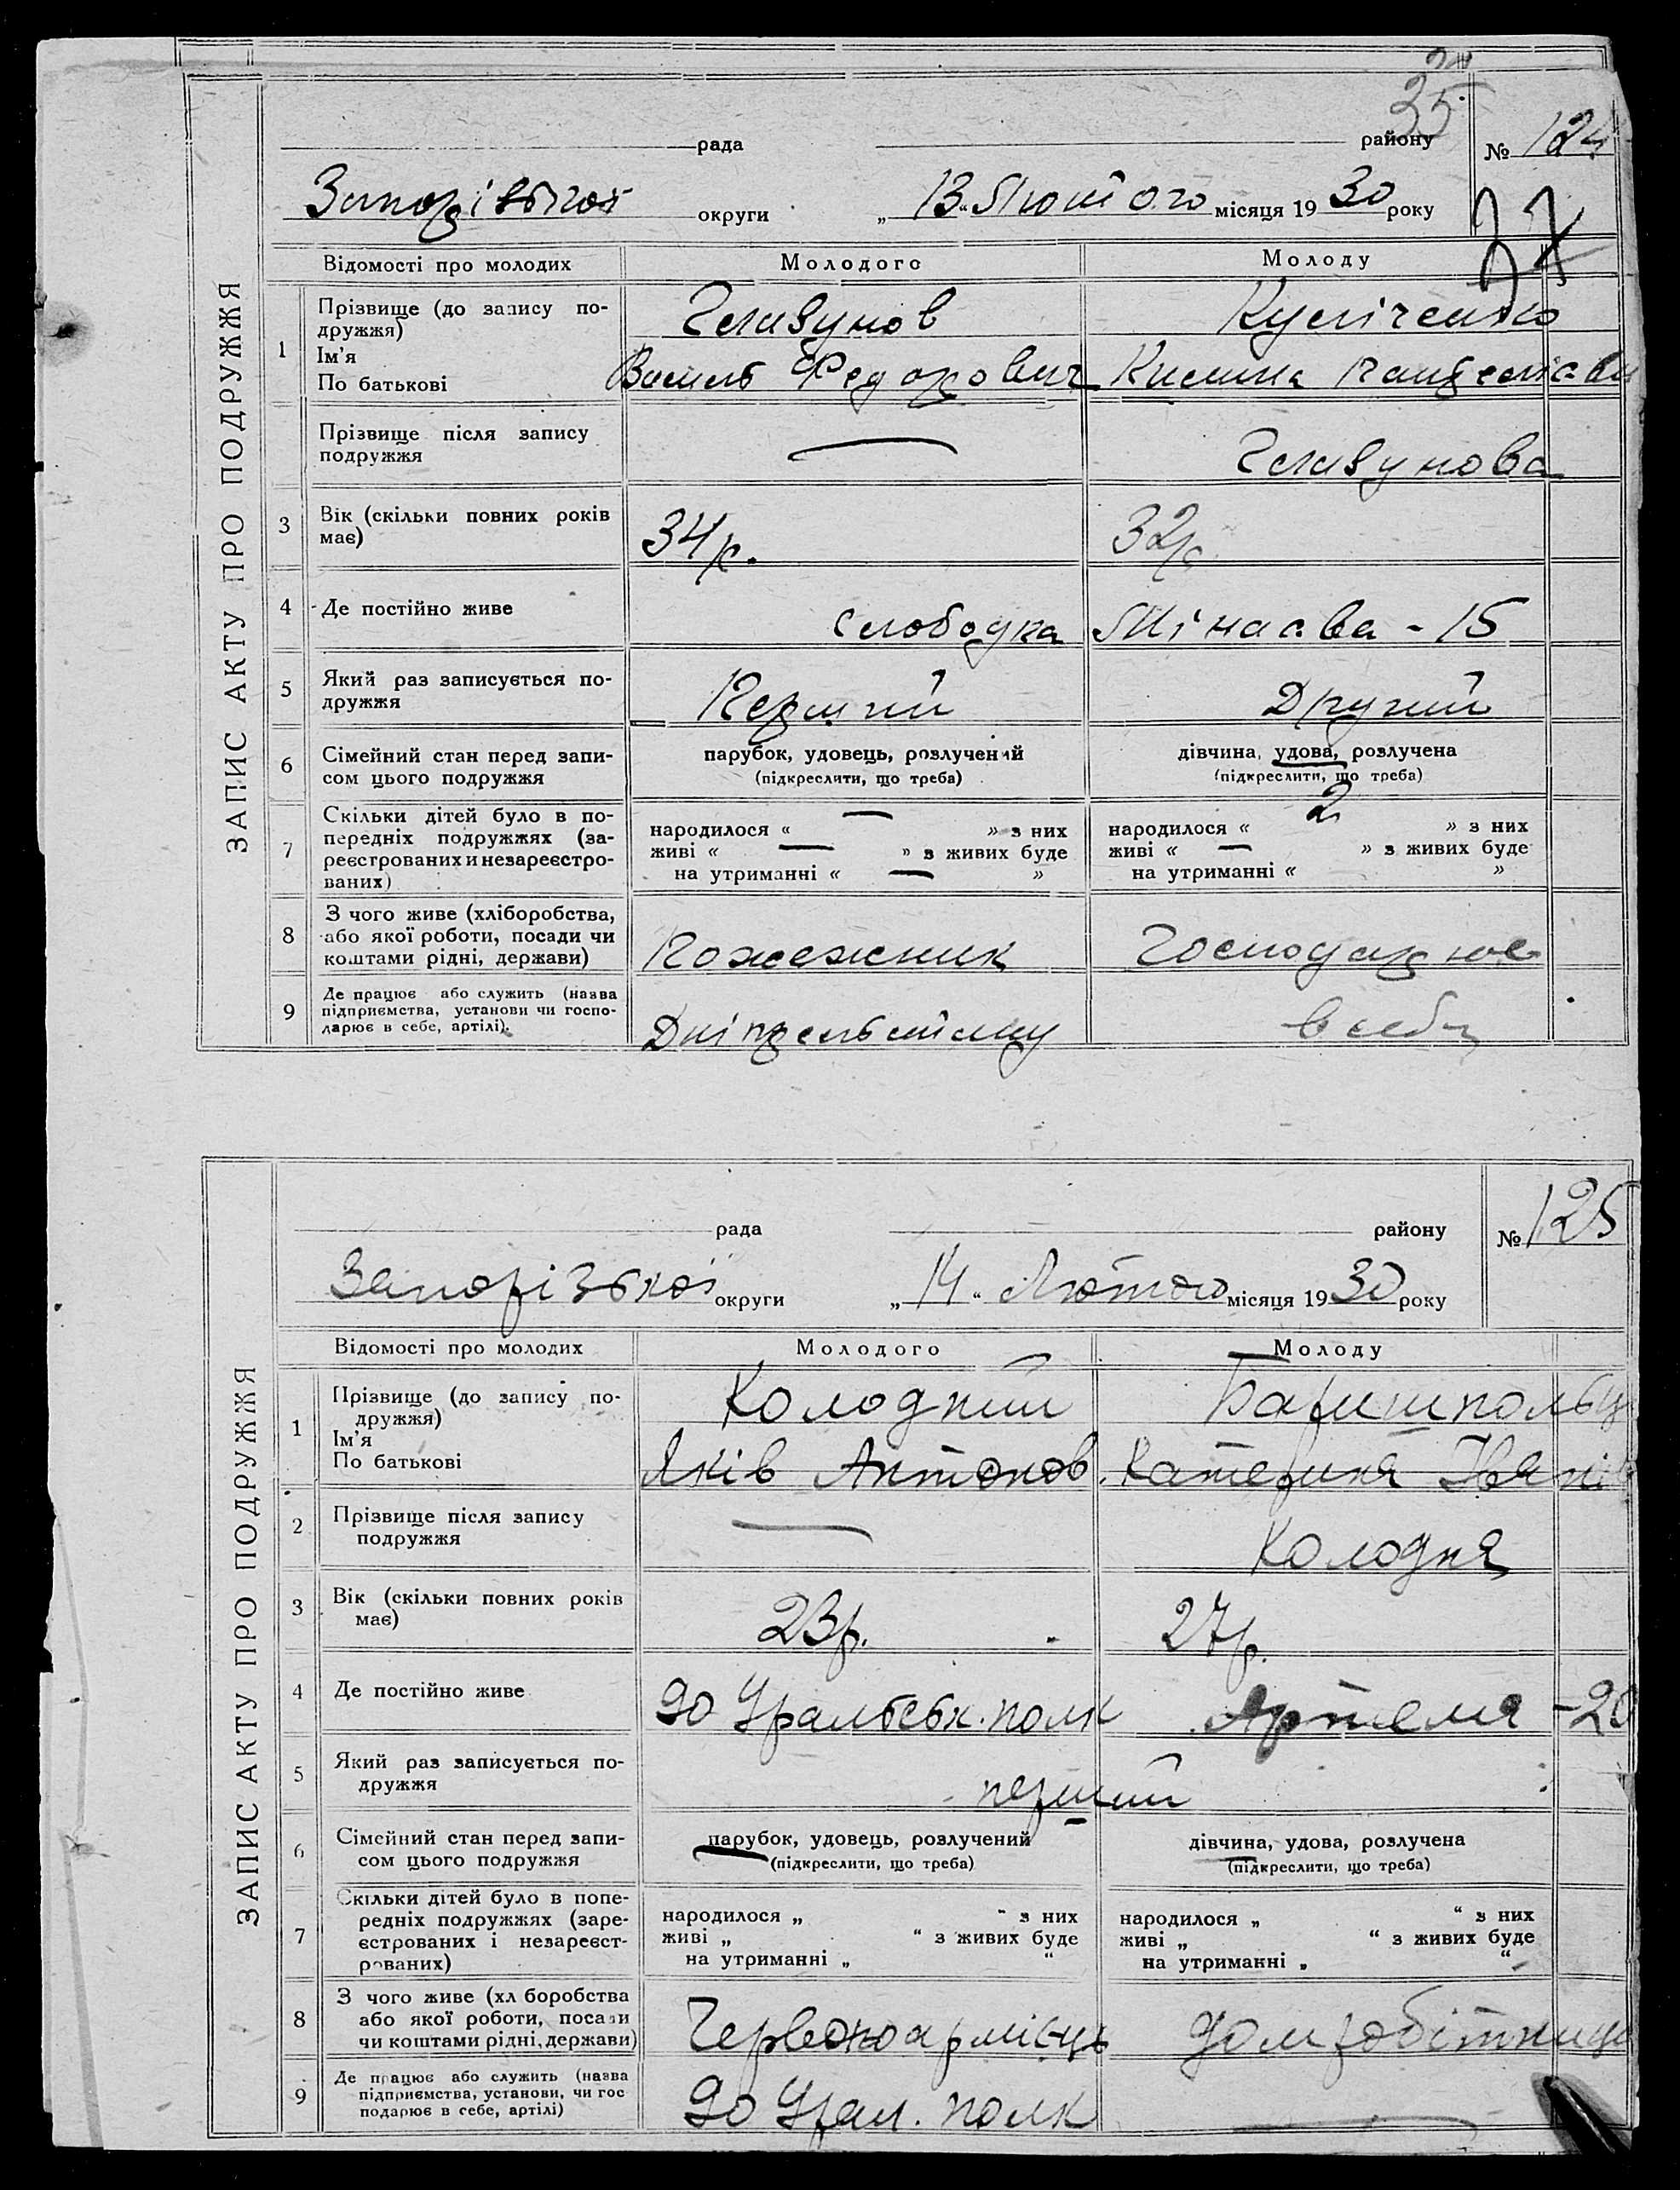 35
рада района № 124
Запорізької округи „ 13 “ Лютого місяця 1930 року
37
ЗАПИС АКТУ ПРО ПОДРУЖЖЯ
Відомості про молодих Молодого Молоду
1 Прізвище (до запису по-
дружжя)
Ім'я
По батькові
Глазунов
Василь Федорович
Прізвище після запису
подружжя
— Глазунова
3 Вік (скільки повних років
має)
34 р. 32 р.
4 Де постійно живе
Слободка Мінаєва - 15
5 Який раз записується по-
дружжя
Перший Другий
6 Сімейний стан перед запи-
сом цього подружжя
парубок, удовець, розлучений
(підкреслити, що треба)
дівчина, удова, розлучена
(підкреслити, що треба)
7 Скільки дітей було в по-
передніх подружжях (за-
реєстрованих и незареєстро-
ваних)
народилося « — » з них
живі « — » з живих буде
на утриманні « — »
народилося « 2 » з них
живі « — » з живих буде
на утриманні « »
8 З чого живе (хліборобства,
або якої роботи, посади чи
коштами рідні, держави)
Пожежник Господарює
9 Де працює або служить (назва
підприємства, установи чи госпо-
дарює в себе, артілі).
Дніпрельстану в себе
рада району № 125
Запорізької округи „ 14 “ Лютого місяця 1930 року
ЗАПИС АКТУ ПРО ПОДРУЖЖЯ
Відомості про молодих Молодого Молоду
1 Прізвище (до запису по-
дружжя)
Ім'я
По батькові
Колодний Баришпольц
Яків Антонов. Катерина Іванів
2 Прізвище після запису
подружжя
— Колодня
3 Вік (скільки повних років
має)
23 р. 27 р.
4 Де постійно живе
90 Уральськ. полк Артема - 20
5 Який раз записується по-
дружжя
перший
6 Сімейний стан перед запи-
сом цього подружжя
парубок, удовець, розлучений
(підкреслити, що треба)
дівчина, удова, розлучена
(підкреслити, що треба)
7 Скільки дітей було в попе-
редніх подружжях (заре-
єстрованих і незареєст-
рованих)
народилося „ “ з них
живі „ “ з живих буде
на утриманні „ “
народилося „ “ з них
живі „ “ з живих буде
на утриманні „ “
8 З чого живе (хл боробства
або якої роботи, посади
чи коштами рідні, держави)
Червоноармієць домробітниця
9 Де працює або служить (назва
підприємства, установи, чи гос
подарює в себе, артілі)
90 Урал. полк —